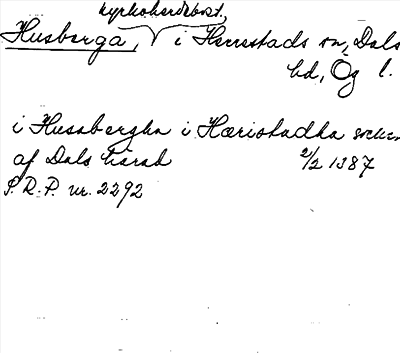 kyrkoherdebost.,
Husberga, i Herrestads sn, Dals
hd, Ög l.
i Husabergha i Hæristadha sokn
af Dals härad 2/2 1387
S.R.P. nr. 2292